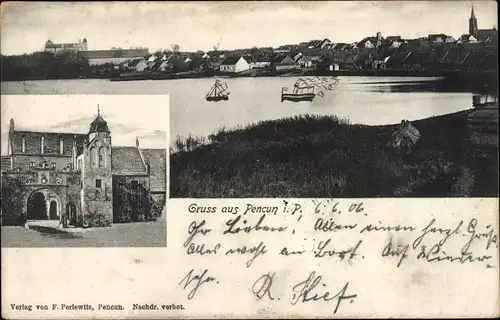 Gruss aus Pencun i. P. 6. 6. 06
Ihr Lieben! Allen einen herzl. Gruß
alles wohl an Bord. Auf Wieder
sehn.
Verlag von F. Perlewitz, Pencun. Nachdr. verbot.